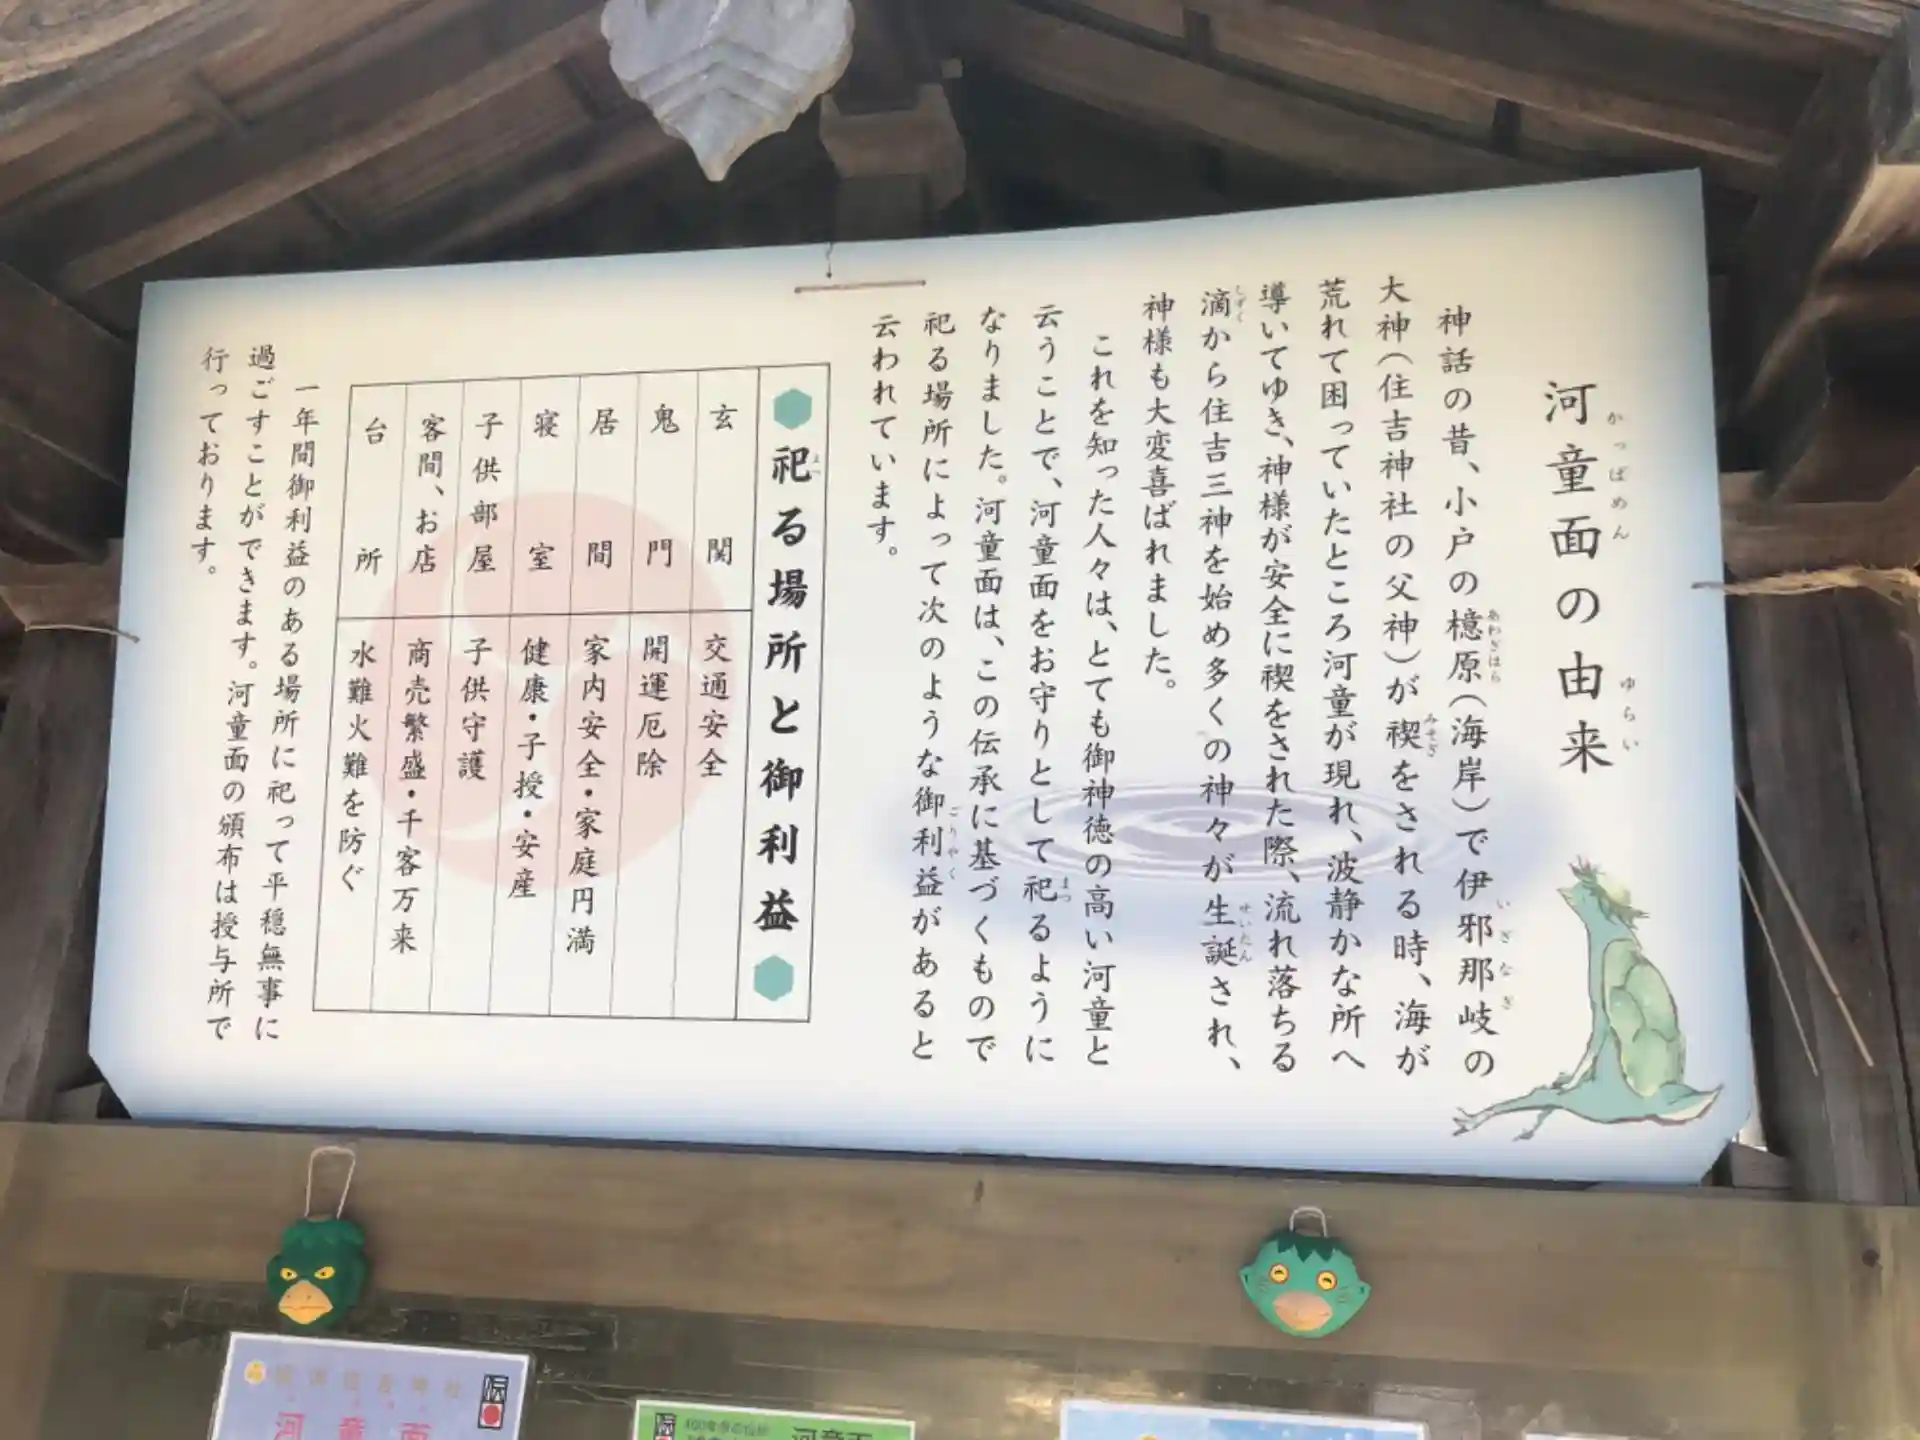 河童面の由来
神話の昔、小戸の檍原(海岸)で伊邪那岐の
大神(住吉神社の父神)が禊をされる時、海が
荒れて困っていたところ河童が現れ、波静かな所へ
導いてゆき、神様が安全に禊をされた際、流れ落ちる
滴から住吉三神を始め多くの神々が生誕され、
神様も大変喜ばれました。
これを知った人々は、とても御神徳の高い河童と
云うことで、河童面をお守りとして祀るように
なりました。河童面は、この伝承に基づくもので
祀る場所によって次のような御利益があると
云われています。
祀る場所と御利益
玄関 交通安全
鬼門 開運厄除
居間 家内安全・家庭円満
寝室 健康・子授・安産
子供部屋 子供守護
客間、お店 商売繁盛・千客万来
台所 水難火難を防ぐ
一年間御利益のある場所に祀って平穏無事に
過ごすことができます。河童面の頒布は授与所で
行っております。
かっぱめん
ゆらい
あわぎはら
いざなぎ
みそぎ
しずく
せいたん
まつ
ごりやく
まつ
河童面
河童面